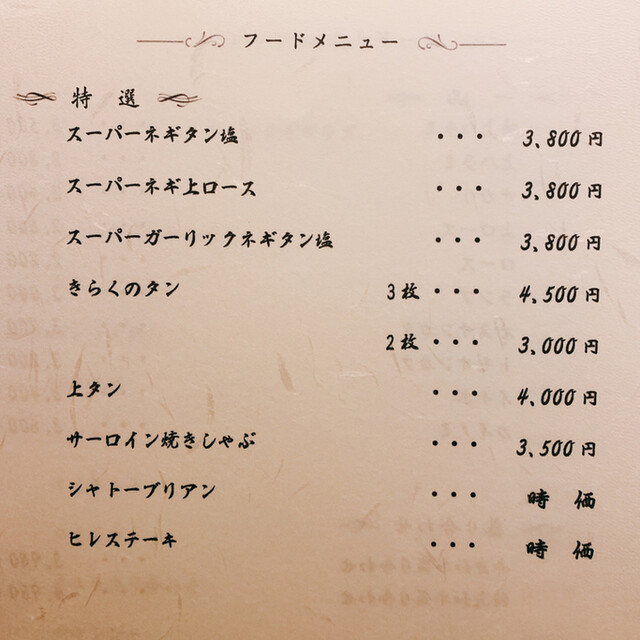 フードメニュー
特 選
スーパーネギタン塩 ・・・ 3、800円
スーパーネギ上ロース ・・・ 3、800円
スーパーガーリックネギタン塩 ・・・ 3、800円
きらくのタン 3枚・・・ 4、500円
2枚・・・ 3、000円
上タン ・・・ 4、000円
サーロイン焼きしゃぶ ・・・ 3、500円
シャトーブリアン ・・・ 時 価
ヒレステーキ ・・・ 時 価